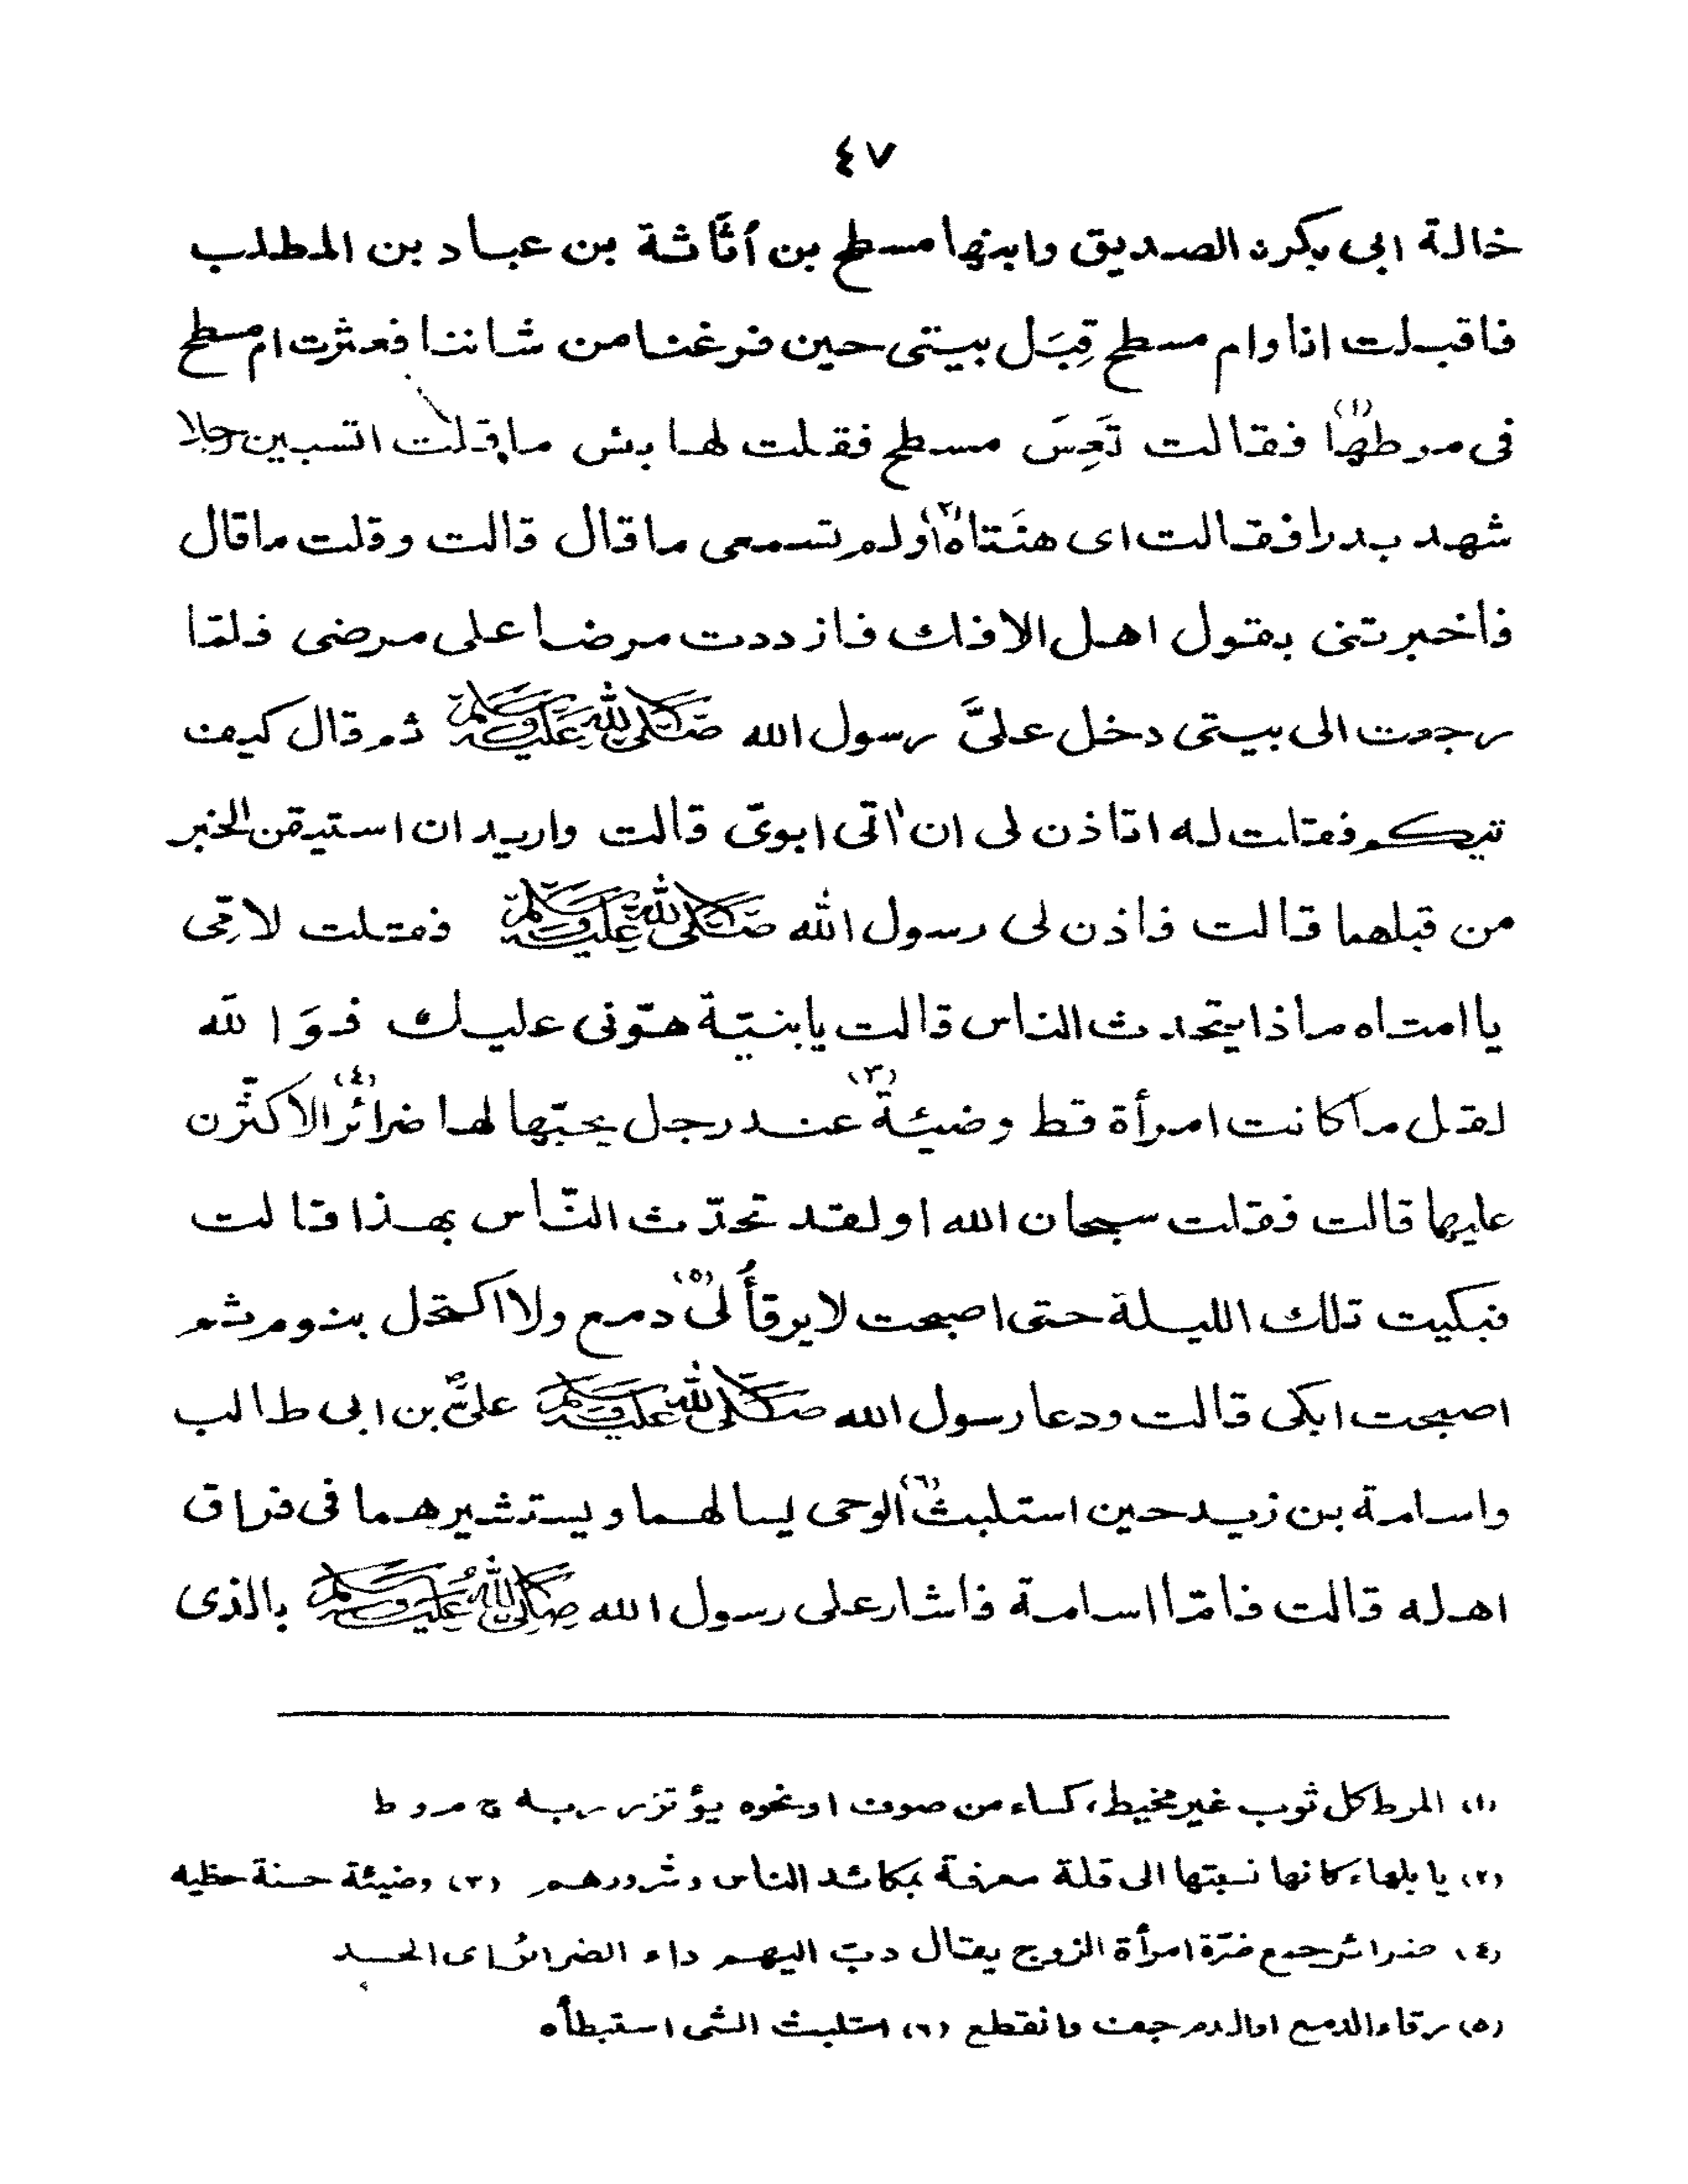 ٤٧
خالة ابى بكر الصديق وابنها مسطح بن أثَاثة بن عباد بن المطلب
فاقبلت انا وام مسطح قِبَل بيتى حين فرغنا من شاننا فعثرت ام مسطح
فى مرطها (١) فقالت تَعِسَ مسطح فقلت لها بئس ما قلت اتسبين رجلا
شهد بدرا فقالت اى هنَتاه (٢) اولم تسمعى ماقال قالت وقلت ماقال
فاخبرتنى بقول اهل الافك فازددت مرضا على مرضى فلمّا
رجعت الى بيتى دخل علىَّ رسول الله ﷺ ثم قال كيف
تيكم فقلت له اتاذن لى ان اٰتى ابوىّ قالت واريد ان استيقن الخبر
من قبلهما قالت فاذن لى رسول الله ﷺ فقلت لامّى
يا امتاه ماذا يتحدث الناس قالت يا بنيّة هوّنى عليك فوَ الله
لقل ما كانت امرأة قط وضيئة (٣) عند رجل يحبّها لها ضرائر (٤) الا كثّرن
عليها قالت فقلت سبحان الله اولقد تحدّث النّاس بهذا قالت
فبكيت تلك الليلة حتى اصبحت لا يرقأُ لى (٥) دمع ولا اكتحل بنوم ثم
اصبحت ابكى قالت ودعا رسول الله ﷺ علىّ بن ابى طالب
واسامة بن زيد حين استلبث (٦) الوحى يسالهما ويستشيرهما فى فراق
اهله قالت فامّا اسامة فاشار على رسول الله ﷺ بالذى
(١) المرط كل ثوب غير مخيط، كساء من صوف او نحوه يؤتزر به ج مروط
(٢) يا بلهاء كانها نسبتها الى قلة معرفة بمكائد الناس وشرورهم (٣) وضيئة حسنة حظيه
(٤) ضرائر جمع ضرّة امرأة الزوج يقال دبّ اليهم داء الضرائر اى الحسد
(٥) رقاء الدمع او الدم جف وانقطع (٦) استلبث الشى استبطأه